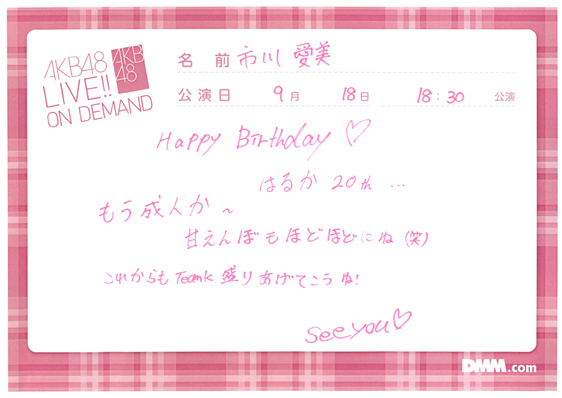 AKB48
LIVE!!
ON DEMAND
AKB
48
名 前 市川 愛美
公演日 9月 18日 18:30 公演
Happy Birthday ♡
はるか 20th ...
もう成人か～
甘えんぼもほどほどにね (笑)
これからも TeamK 盛りあげてこうね!
see you ♡
DMM.com